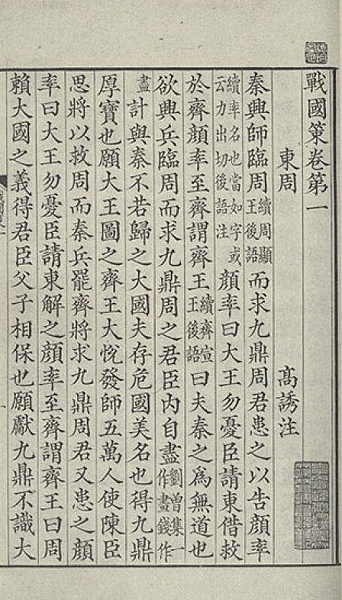 戰國策卷第一
東周 高誘注
秦興師臨周續周顯王後語而求九鼎周君患之以告顏率
續率名也當如字或云力出切後語注顏率曰大王勿憂臣請東借救
於齊顏率至齊謂齊王續齊宣王後語曰夫秦之爲無道也
欲興兵臨周而求九鼎周之君臣內自盡劉曾集一作畫錢作
畫計與秦不若歸之大國夫存危國美名也得九鼎
厚寶也願大王圖之齊王大悅發師五萬人使陳臣
思將以救周而秦兵罷齊將求九鼎周君又患之顏
率曰大王勿憂臣請東解之顏率至齊謂齊王曰周
賴大國之義得君臣父子相保也願獻九鼎不識大